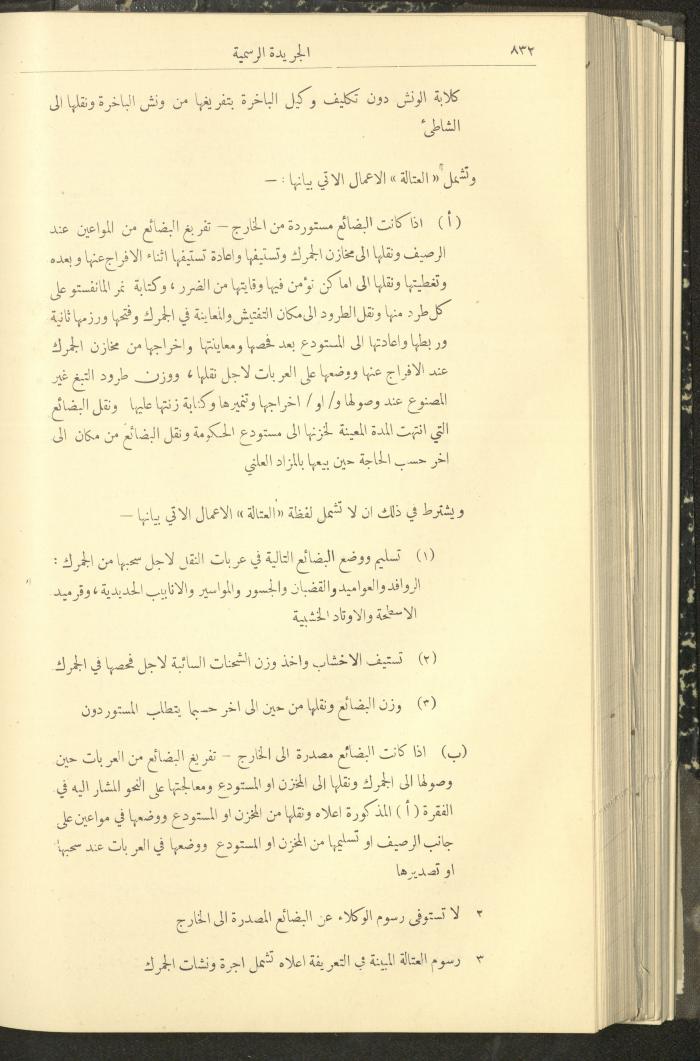 ٨٣٢
الجريدة الرسمية
كلابة الونش دون تكليف وكيل الباخرة بتفريغها من ونش الباخرة ونقلها الى
الشاطئ
وتشمل «العتالة» الاعمال الاتي بيانها : —
(أ) اذا كانت البضائع مستوردة من الخارج — تفريغ البضائع من المواعين عند
الرصيف ونقلها الى مخازن الجمرك وتستيفها واعادة تستيفها اثناء الافراج عنها وبعده
وتغطيتها ونقلها الى اماكن نؤمن فيها وقايتها من الضرر ، وكتابة نمر المانفستو على
كل طرد منها ونقل الطرود الى مكان التفتيش والمعاينة في الجمرك وفتحها ورزمها ثانية
وربطها واعادتها الى المستودع بعد فحصها ومعاينتها واخراجها من مخازن الجمرك
عند الافراج عنها ووضعها على العربات لاجل نقلها ، ووزن طرود التبغ غير
المصنوع عند وصولها و/ او / اخراجها وتنميرها وكتابة زنتها عليها ونقل البضائع
التي انتهت المدة المعينة لخزنها الى مستودع الحكومة ونقل البضائع من مكان الى
اخر حسب الحاجة حين بيعها بالمزاد العلني
ويشترط في ذلك ان لا تشمل لفظة «العتالة» الاعمال الاتي بيانها —
(١) تسليم ووضع البضائع التالية في عربات النقل لاجل سحبها من الجمرك :
الروافد والعواميد والقضبان والجسور والمواسير والانابيب الحديدية ، وقرميد
الاسطحة والاوتاد الخشبية
(٢) تستيف الاخشاب واخذ وزن الشحنات السائبة لاجل فحصها في الجمرك
(٣) وزن البضائع ونقلها من حين الى اخر حسبما يتطلب المستوردون
(ب) اذا كانت البضائع مصدرة الى الخارج — تفريغ البضائع من العربات حين
وصولها الى الجمرك ونقلها الى المخزن او المستودع ومعالجتها على النحو المشار اليه في
الفقرة (أ) المذكورة اعلاه ونقلها من المخزن او المستودع ووضعها في مواعين على
جانب الرصيف او تسليمها من المخزن او المستودع ووضعها في العربات عند سحبها
او تصديرها
٢ لا تستوفى رسوم الوكلاء عن البضائع المصدرة الى الخارج
٣ رسوم العتالة المبينة في التعريفة اعلاه تشمل اجرة ونشات الجمرك